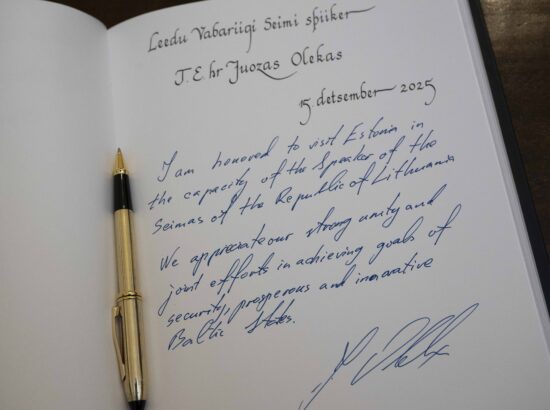 Leedu Vabariigi Seimi spiiker
T. E. hr Juozas Olekas
15 detsember 2025
I am honored to visit Estonia in
the capacity of the Speaker of the
Seimas of the Republic of Lithuania
We appreciate our strong unity and
joint efforts in achieving goals of
security, prosperous and inovative
Baltic States.